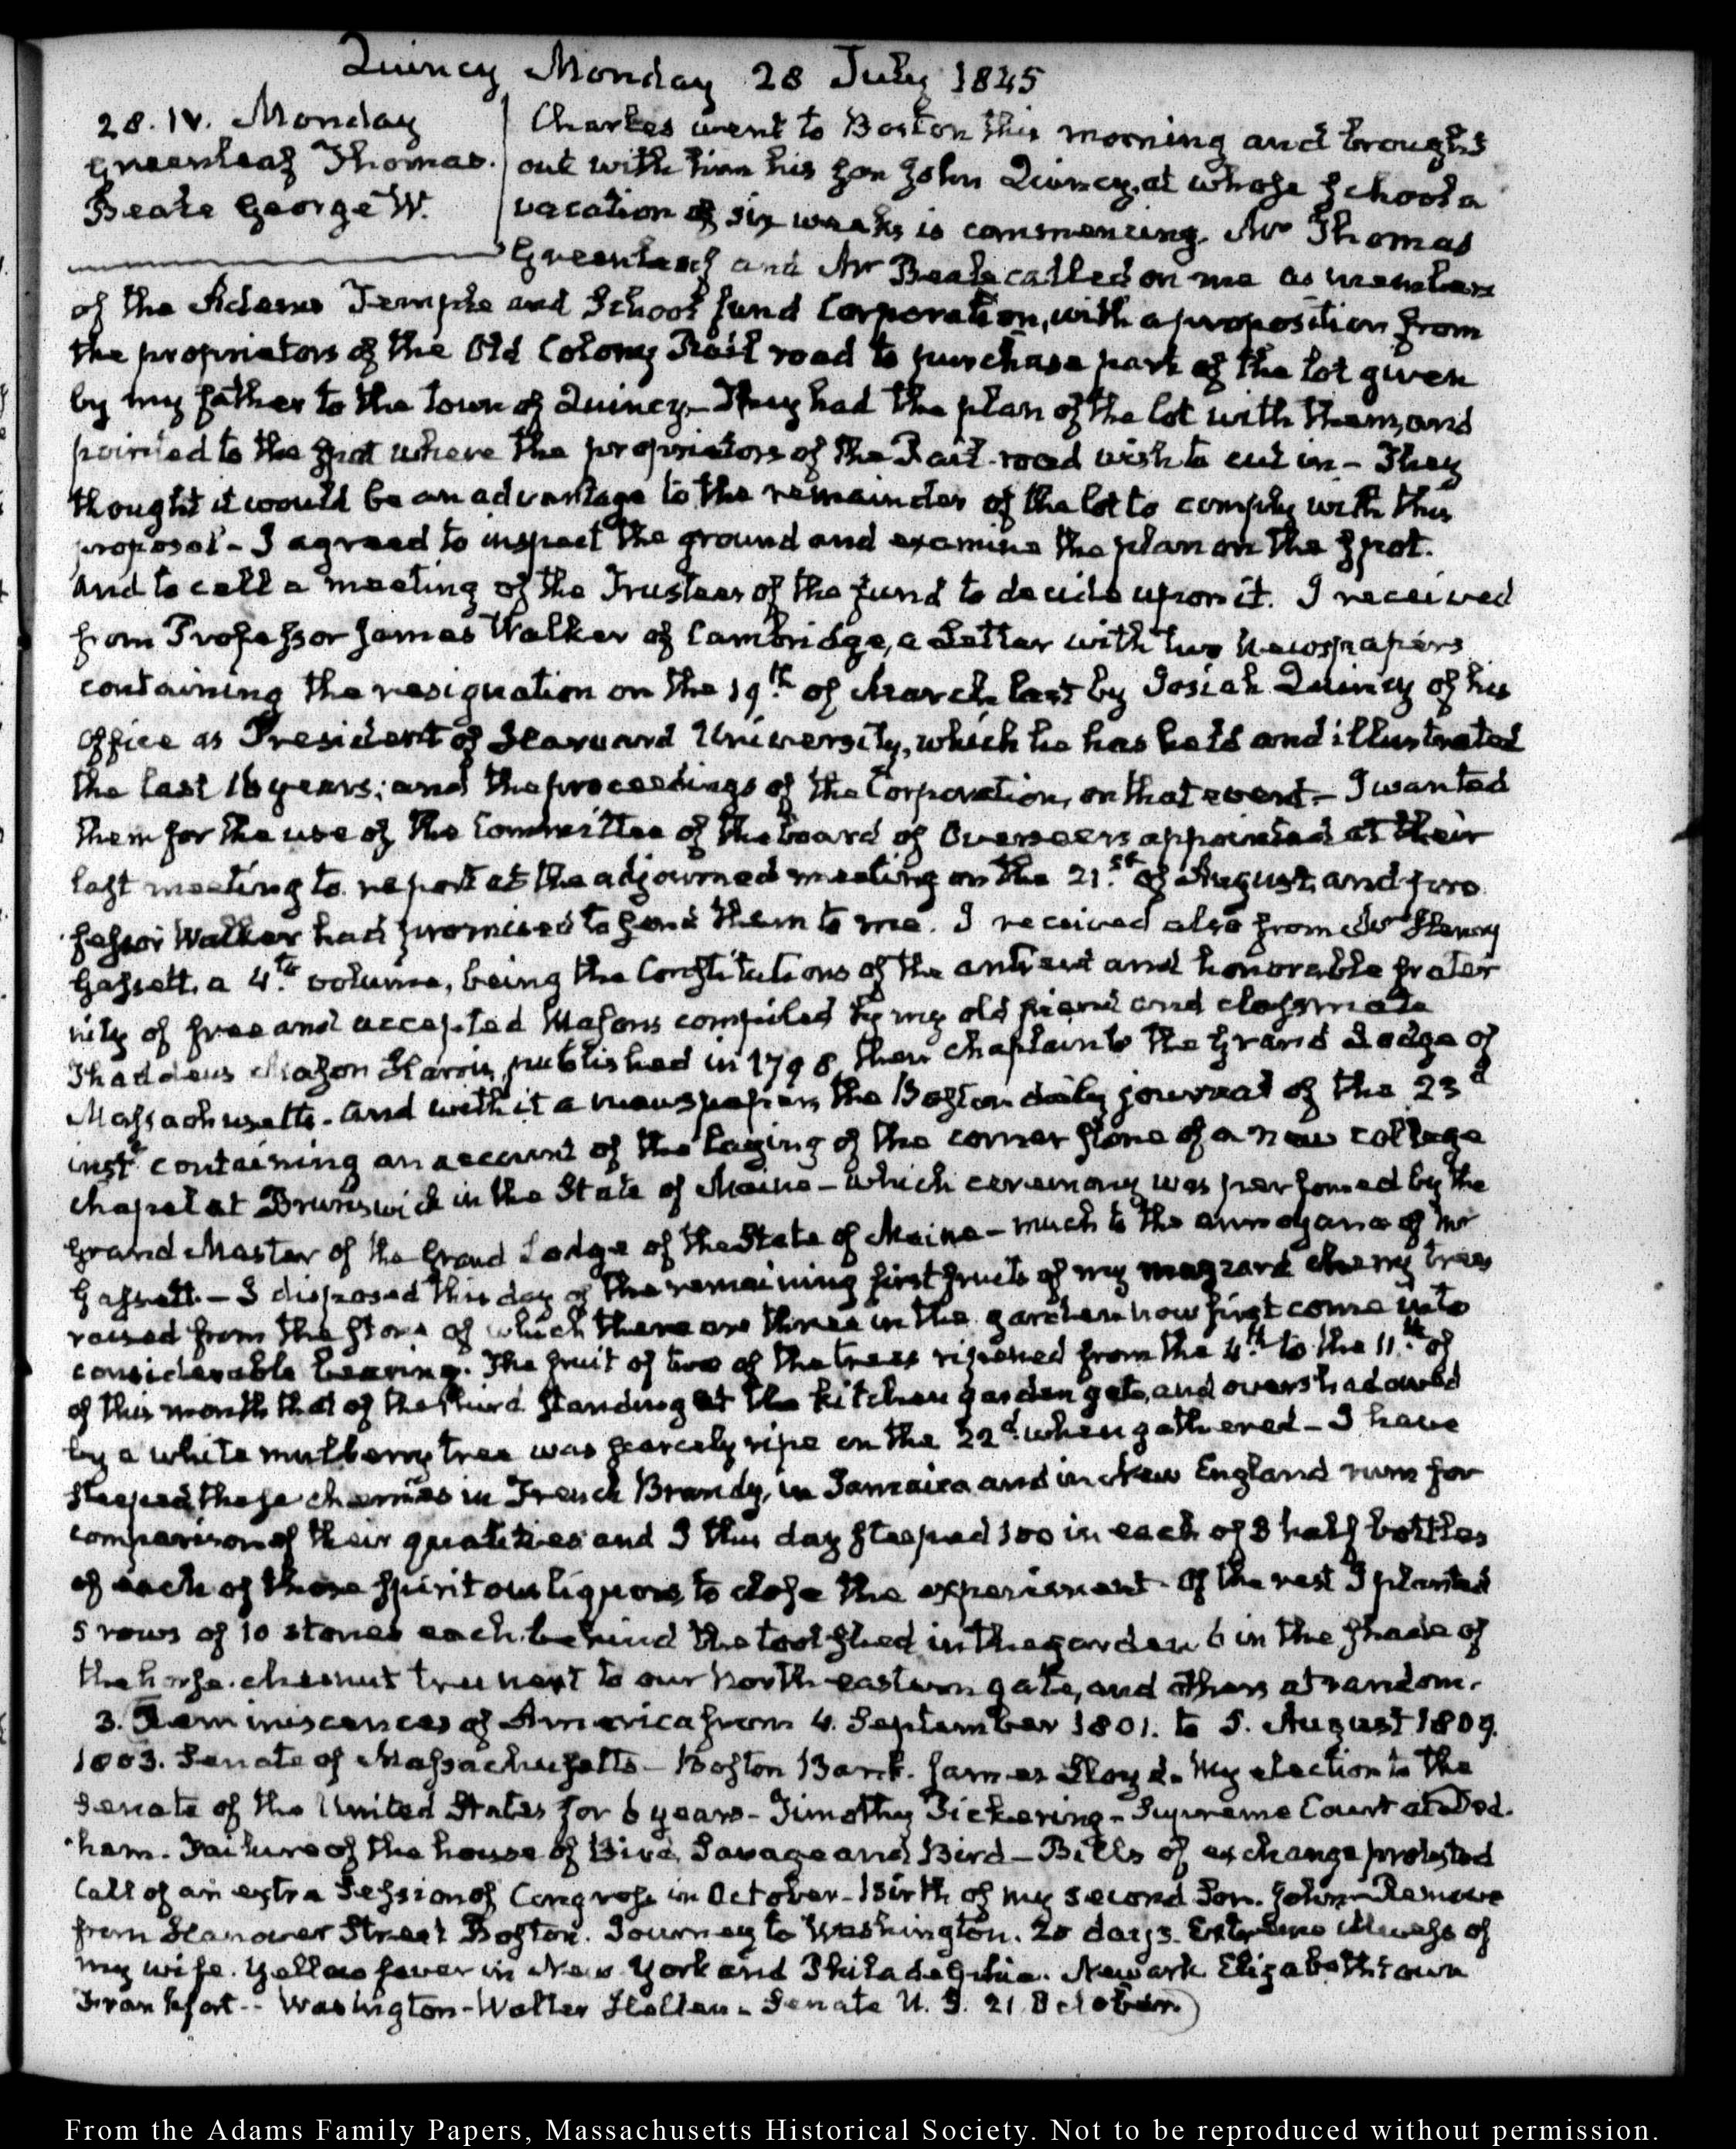 Quincy Monday 28 July 1845
28. IV. Monday
Greenleaf Thomas.
Beale George W.
Charles went to Boston this morning and brought
out with him his son John Quincy, at whose school a
vacation of six weeks is commencing. Mr Thomas
Greenleaf and Mr Beale called on me as members
of the Adams Temple and School fund Corporation, with a proposition from
the proprietors of the Old Colony Rail road to purchase part of the lot given
by my father to the town of Quincy— They had the plan of the lot with them, and
pointed to the spot where the proprietors of the Rail-road wish to cut in— They
thought it would be an advantage to the remainder of the lot to comply with this
proposal— I agreed to inspect the ground and examine the plan on the spot.
and to call a meeting of the Trustees of the fund to decide upon it. I received
from Professor James Walker of Cambridge, a Letter with two Newspapers
containing the resignation on the 19th of March last by Josiah Quincy of his
Office as President of Harvard University, which he has held and illustrated
the last 16 years; and the proceedings of the Corporation, on that event— I wanted
them for the use of the Committee of the board of Overseers appointed at their
last meeting to report at the adjourned meeting on the 21st of August, and pro
fessor Walker had promised to send them to me. I received also from Mr Henry
Gassett, a 4th volume, being the Constitutions of the antient and honorable frater
nity of free and accepted Masons compiled by my old friend and classmate
Thaddeus Mason Harris, published in 1798, then chaplain to the Grand Lodge of
Massachusetts. and with it a newspaper, the Boston daily journal of the 23d
inst containing an account of the laying of the corner stone of a new college
chapel at Brunswick in the State of Maine— which ceremony was performed by the
Grand Master of the Grand Lodge of the State of Maine— much to the annoyance of Mr
Gassett.— I disposed this day of the remaining first fruits of my mazzard cherry trees
raised from the stone of which there are three in the garden now first come into
considerable bearing. The fruit of two of the trees ripened from the 4th to the 11th of
of this month that of the third standing at the kitchen garden gate, and overshadowed
by a white mulberry tree was scarcely ripe on the 22d when gathered— I have
steeped these cherries in French Brandy, in Jamaica and in New England rum for
comparison of their qualities and I this day steeped 100 in each of 3 half bottles
of each of those spiritous liquors, to close the experiment. Of the rest I planted
5 rows of 10 stones each behind the tool shed in the garden 6 in the shade of
the horse-chesnut tree next to our North-eastern gate, and others at random.
3. Reminiscences of America from 4. September 1801. to 5. August 1809.
1803. Senate of Massachusetts— Boston Bank. James Lloyd. My election to the
Senate of the United States for 6 years— Timothy Pickering— Supreme Court at Ded-
ham. Failure of the house of Bird, Savage and Bird— Bills of exchange protested
Call of an extra Session of Congress in October— Birth of my second Son. John— Remove
from Hanover Street Boston. Journey to Washington. 20 days. Extreme illness of
my wife. Yellow fever in New York and Philadelphia. Newark Elizabethtown
Frankfort-- Washington— Walter Hellen— Senate U. S. 21. October)
From the Adams Family Papers, Massachusetts Historical Society. Not to be reproduced without permission.